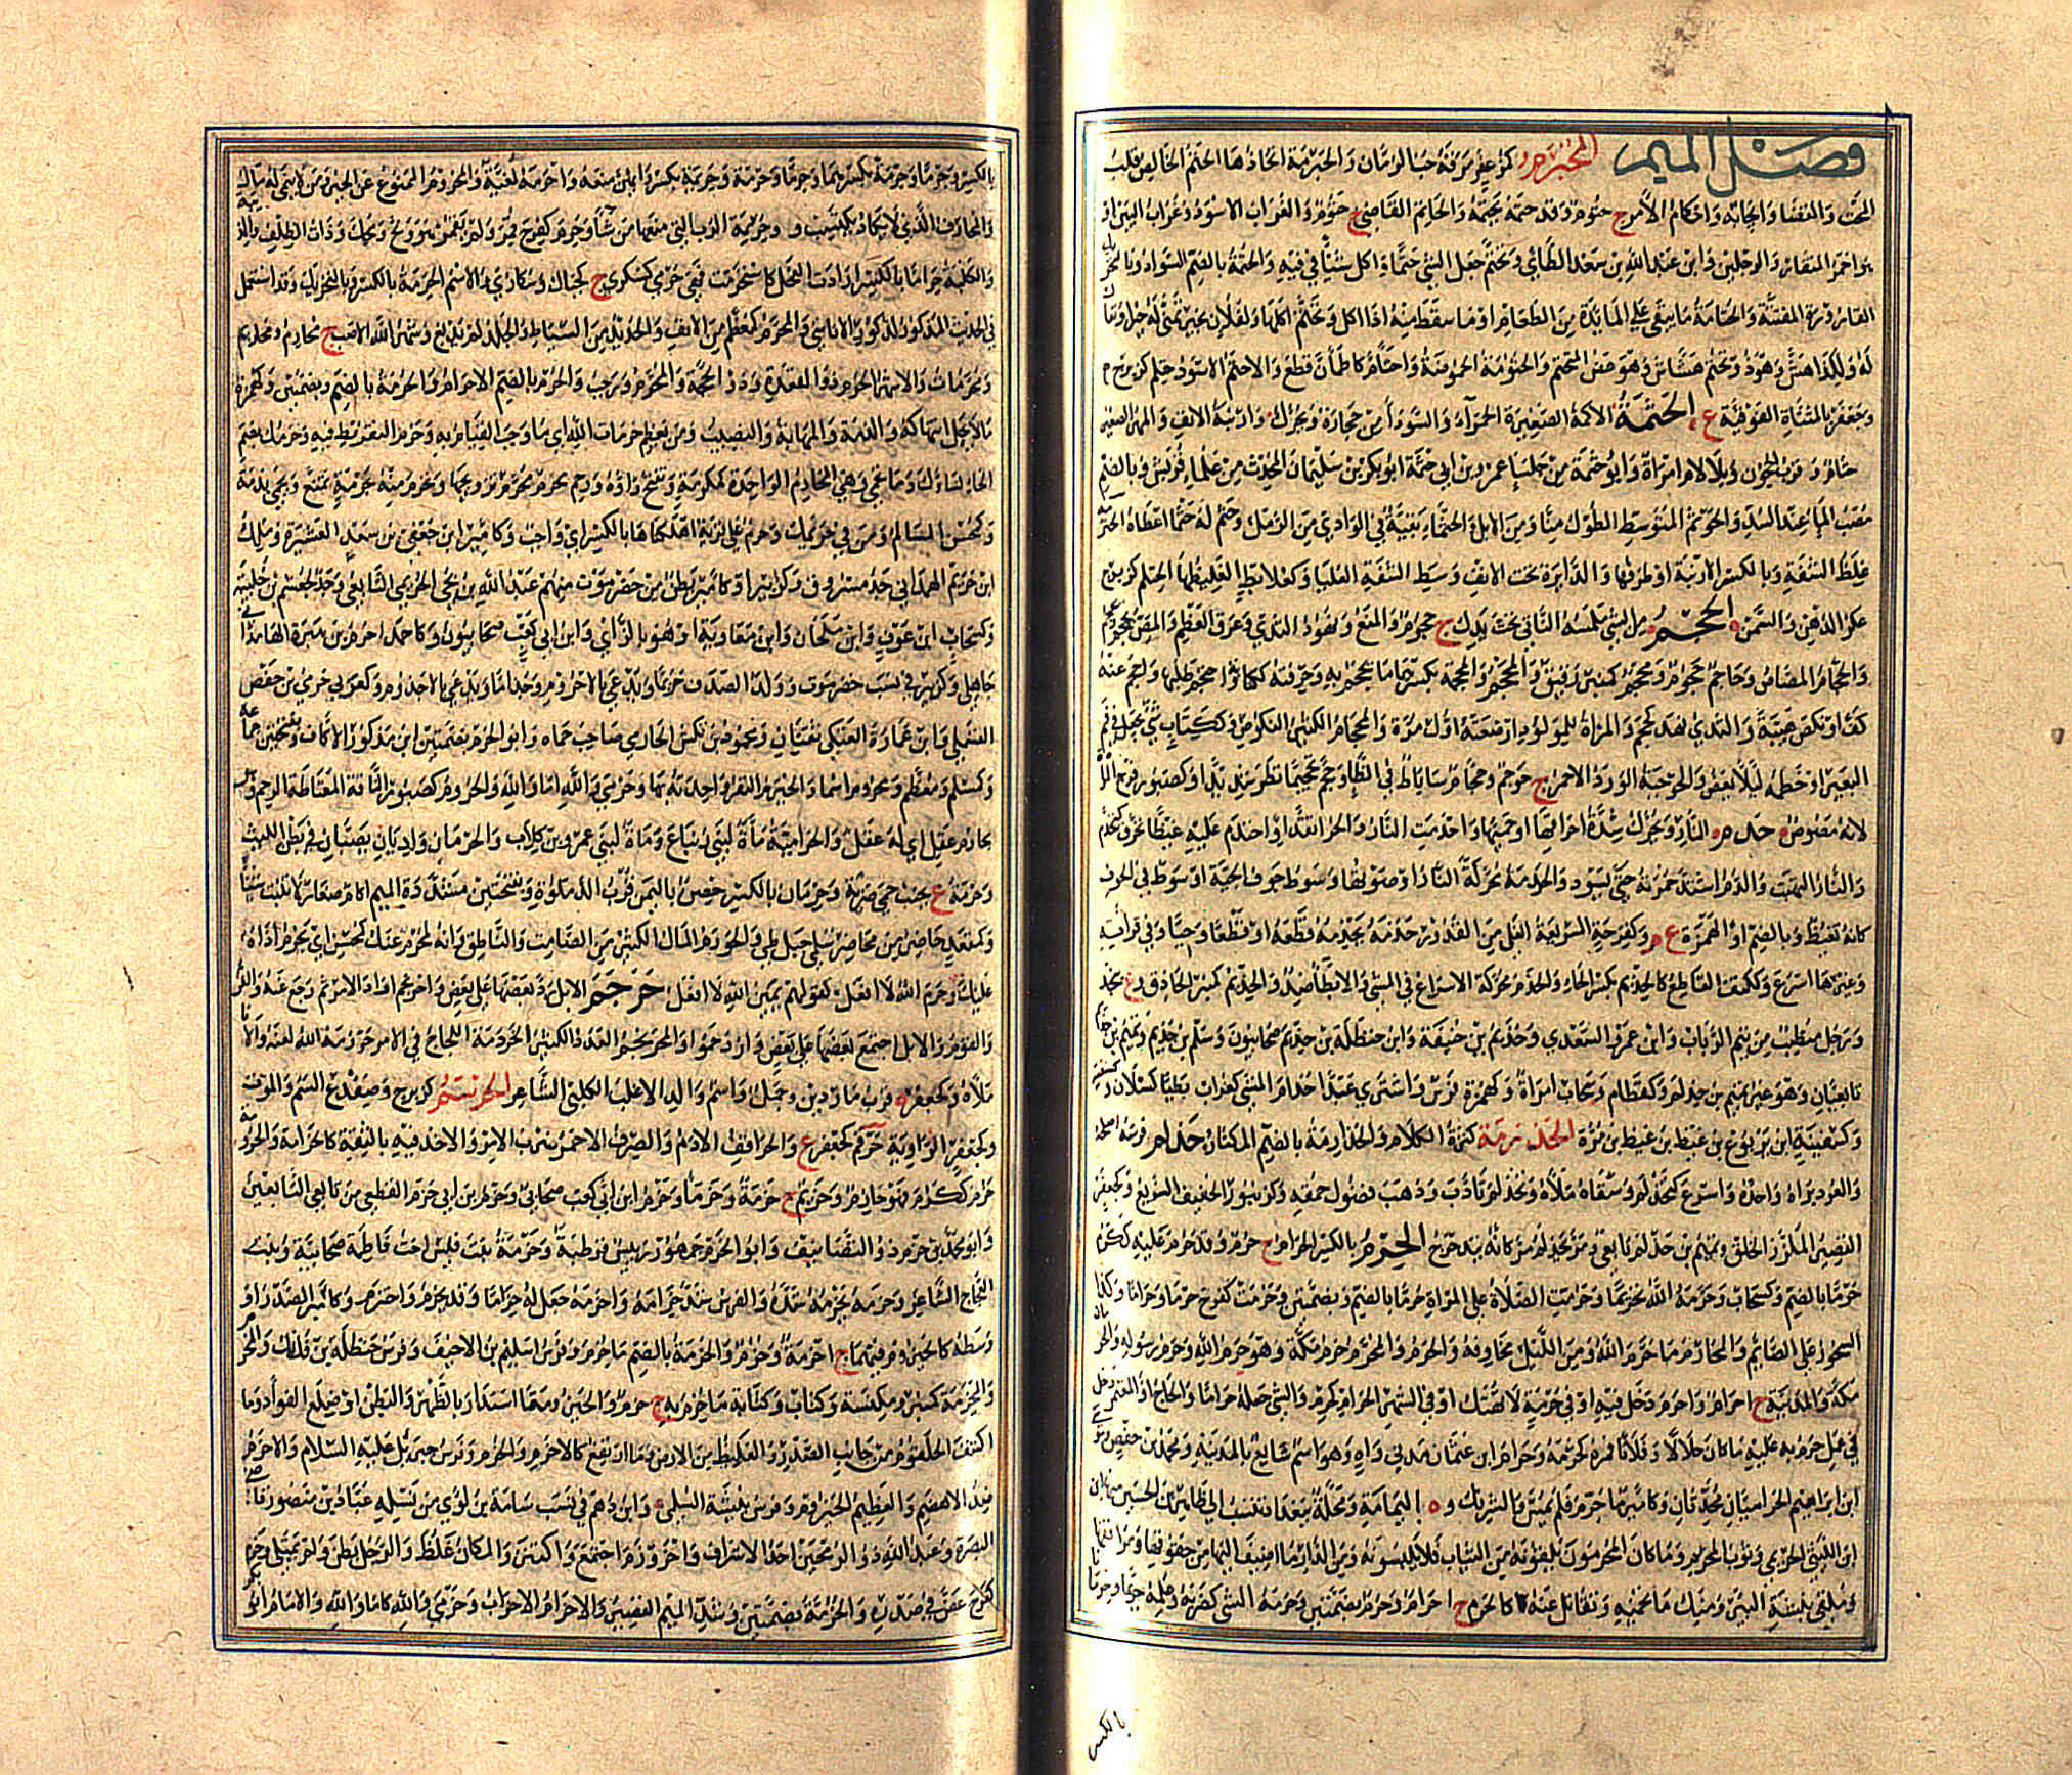 فصل الميم المحبرم كزعفر مرقة حب الرمان والحبرمة اتخاذها الحتم الخالص قلب
المحت والقضاء وايجابه واحكام الأمر ج حتوم وقد حتمه يحتمه والحاتم القاضي ج حتوم والغراب الاسود وغراب البين او
هو احمر المنقار والرجلين وابن عبد الله بن سعد الطائي وتحتم جعل الشيء حتما واكل شيئا في فيه والحتمة بالضم السواد وبالتحر
القارورة المفتتة والحتامة ما بقي على المائدة من الطعام او ما سقط منه اذا اكل وتحتم اكلها ولفلان بخير تمنى له
له ولكذا هش وهو ذو تحتم هشاش وهو غض المتحتم والحتومة الحموضة واحتأم كاطمأن قطع والاحتم الاسود حتلم كزبرج
وجعفر بالمثناة الفوقية ع الحثمة الاكمة الصغيرة الحمراء او السوداء من حجارة ويحرك وارنبة الانف والمهر الصغير
و قرب الحجون وبلا لام امرأة وابو حثمة من جلساء عمر وابن ابي حثمة ابو بكر بن سليمان المحدث من علماء قريش وبالضم
مصب الماء عند السد والحوثم المتوسط الطول منا ومن الابل والحثماء بقية في الوادي من الرمل وحثم له حثما اعطاه الحثرمة
غلظ الشفة وبالكسر الارنبة او طرفها والدائرة تحت الانف وسط الشفة العليا وكعلابط الغليظها الحثلم كزبرج
عكر الدهن والسمن الحجم من الشيء ملمسه الناتئ تحت يدك ج حجوم والمنع ونهود الثدي وعرق العظم والمص يحجم
والحجام المصاص وحاجم حجوم ومحجم كمنبر رفيق والمحجم والمحجمة بكسرهما ما يحجم به وحرفته ككتابة واحتجم طلبها واحجم عنه
كف او نكص هيبة والثدي نهد كحجم والمرأة للمولود ارضعته اول مرة والمحجام الكثير النكوص و ككتاب شيء يجعل في فم
البعير او خطمه لئلا يعض والحوجمة الوردة الاحمر ج حوجم ومحجمة وحجم تحجيما نظر شديدا وكصبور فرج المرأة
لانه مصوص حدم النار ويحرك شدة احراقها او حميتها واحتدمت النار والحر اتقدا واحتدم عليه غيظا تحرق كتحدم
والنار التهبت والدم اشتدت حمرته حتى يسود والحدمة محركة النار او صوتها وصوت جوف الحية او صوت في الجوف
كانه تغيظ وبالضم او كهمزة ع وكفرحة السريعة الغلي من القدور حذمه يحذمه قطعه او قطعا وحيا وفي قراءته
وغيرها اسرع وككتف القاطع كالحذيم بكسر الحاء والحذم محركة الاسراع في المشي والابطاء ضد والحذيم كمنبر الحاذق
ورجل متطبب من تيم الرباب وابن عمرو السعدي وحذيم بن حنيفة وابن حنظلة بن حذيم صحابيون وسلم بن حذيم وتميم بن
تابعيان وهو غير تميم بن حذلم وكقطام وسحاب امرأة وكهمزة فرس واشترى عبدا حذام المشي كغراب بطيئا كسلان
وكسفينة ابن يربوع بن غيظ بن مرة الحذرمة كثرة الكلام والحذارمة بالضم المكثار حذلم فرسه اصلحه
والعود براه واحده واسرع كتحذلم وسقاه ملأه وتحذلم تأدب وذهب فضول حمقه وكزنبور الخفيف السريع وكجعفر
القصير الملزز الخلق وتميم بن حذلم تابعي ومر يتحذلم مر كانه يتدحرج الحرم بالكسر الحرام ج حرم وقد حرم عليه ككرم
حرما بالضم وكسحاب وحرمه الله تحريما وحرمت الصلاة على المرأة حرما بالضم وبضمتين وحرمت كفرح حرما وحراما وكذا
السحور على الصائم والمحارم ما حرم الله ومن الليل مخاوفه والحرم والمحرم حرم مكة وهو حرم الله وحرم رسوله والحر
مكة والمدينة ج احرام واحرم دخل فيه او في حرمة لا تهتك او في الشهر الحرام كحرم والشيء جعله حراما والحاج او المعتمر دخل
في عمل حرم به عليه ما كان حلالا وفلانا قمره كحرمه وحرام ابن عثمان مدني واه وهو اسم شائع بالمدينة ومحمد بن حفص
ابن ابراهيم الحراميان محدثان وكامير ما حرم فلم يمس والشريك و ه باليمامة ومحلة ببغداد تنسب الى طاهر بن الحسين
ابن الليثي الحريمي وثوب المحرم وما كان المحرمون يلقونه من الثياب فلا يلبسونه ومن الدار ما اضيف اليها من حقوقها ومرافقها
وملقى نبيثة البئر ومنك ما تحميه وتقاتل عنه كالحرم ج احرام وحرم بضمتين وحرمه الشيء كضربه وعلمه حريما وحرمانا
بالكس
بالكسر وحرما وحرمة بكسرهما وحرما وحرمة وحريمة بكسر رائهن منعه واحرمه لغية والمحروم الممنوع عن الخير ومن لا ينمى له مال
والمحارف الذي لا يكاد يكتسب و وحريمة الرب التي منعها من شاء وحرم كفرح قمر ولم يقمر هو ولج ومحك وذات الظلف والذئبة
والكلبة حراما بالكسر ارادت الفحل كاستحرمت فهي حرمى كسكرى ج كجبال وسكارى والاسم الحرمة بالكسر وبالتحريك وقد استعمل
في الحديث لذكور الاناسي والمحرم كمعظم من الانف والحديد من السياط والجلد لم يدبغ وشهر الله الاصب ج محارم ومحاريم
ومحرمات والاشهر الحرم ذو القعدة وذو الحجة والمحرم ورجب والحرم بالضم الاحرام والحرمة بالضم وبضمتين وكهمزة
ما لا يحل انتهاكه والذمة والمهابة والنصيب ومن يعظم حرمات الله اي ما وجب القيام به وحرم التفريط فيه وحرمك بضم
الحاء نساؤك وما تحمي وهي المحارم الواحدة كمكرمة وتفتح راؤه ورحم محرم محرم تزوجها وتحرم منه بحرمة تمنع وتحمى بذمة
وكمحسن المسالم ومن في حريمك وحرم على قرية اهلكناها بالكسر اي واجب وكامير ابن جعفي بن سعد العشيرة ومالك
ابن حريم الهمداني جد مسروق وكزبير او كامير بطن من حضرموت منهم عبد الله بن نجي الحريمي التابعي وجد لجشم بن خليبة
وكسحاب ابن عوف وابن ملحان وابن معاوية او هو بالزاي وابن ابي كعب صحابيون وكاحمد احرم بن هبرة الهمداني
جاهلي وكزبير في نسب حضرموت وولد الصدف حريما ويدعى بالاحروم وجذاما ويدعى بالاجذوم وكعربي حرمي بن حفص
القسملي وابن عمارة العتكي ثقتان ومحمود بن تكش الحارمي صاحب حماه وابو الحرم بفتحتين ابن مذكور الاكاف وبفتحتين جماعة
وكمسلم ومعظم ومحروم اسما والحيرم البقر واحدته بهاء وحرمى والله اما والله والحروم كصبور الناقة المعتاطة الرحم
محارم عقيل اي له عقل والحرامية مأة لبني زنباع ومأة لبني عمرو بن كلاب والحرمان واديان يصبان في بطن الليث
وحرمة ع بجنب حمى ضرية وحرمان بالكسر حصن باليمن قرب الدملوة وبفتحتين مشددة الميم ام صعار لا تنبت شيئا
وكمقعد حاضر من محاضر سلمى جبل طي والحورم المال الكثير من الصامت والناطق وانه لمحرم عنك كمحسن اي يحرم اذاه
عليك وحرم الله لا افعل كقولهم يمين الله لا افعل حرجم الابل رد بعضها على بعض واحرنجم اراد الامر ثم رجع عنه والقوم
والقوم والابل اجتمع بعضها على بعض وازدحموا والمحرنجم العدد الكثير الحردمة اللجاج في الامر حرزمه الله لعنه والاناء
ملأه وكجعفر ه قرب ماردين وجمل واسم والد الاغلب الكلبي الشاعر الحرسم كزبرج وضفدع السم والموت
وكجعفر الزاوية حرقم كجعفر ع والحراقم الادم والصرف الاحمر الحزم ضبط الامر والاخذ فيه بالثقة كالحزامة والحزومة
حزم ككرم فهو حازم وحزيم ج حزمة وحزماء وحزم ابن ابي كعب صحابي وحزم بن ابي حزم القطعي من تابعي التابعين
وابو محمد بن حزم ذو التصانيف وابو الحزم جهور رئيس قرطبة وحزمة بنت قيس اخت فاطمة صحابية وبنت
العجاج الشاعر وحزمه يحزمه شده والفرس شد حزامه واحزمه جعل له حزاما وقد تحزم واحتزم وكامير الصدر او
وسطه كالحيزوم فيهما ج احزمة وحزم والحزمة بالضم ما حزم وفرس اسليم بن الاحنف وفرس حنظلة بن فاتك والمحزم
والمحزمة كمنبر ومكنسة وكتاب وكتابة ما حزم به ج حزم والحيزوم ما استدار بالظهر والبطن او ضلع الفؤاد وما
اكتنف الحلقوم من جانب الصدر والغليظ من الارض وما ارتفع كالاحزم والحزم وفرس جبريل عليه السلام والاحزم
ضد الاهضم والعظيم الحيزوم وفرس نبيشة السلمي وابن ذهل في نسب سامة بن لؤي من نسله عباد بن منصور قاضي
البصرة وعبد الله ذو الرمحين احد الاشراف واحزوزم اجتمع واكتنز والمكان غلظ والرجل بطن ولم يمتلئ وحزم
كفرح غص في صدره والحزمة بضمتين وشد الميم القصير والاحزام الاحزاب وحزمى والله كاما والله والامام ابو